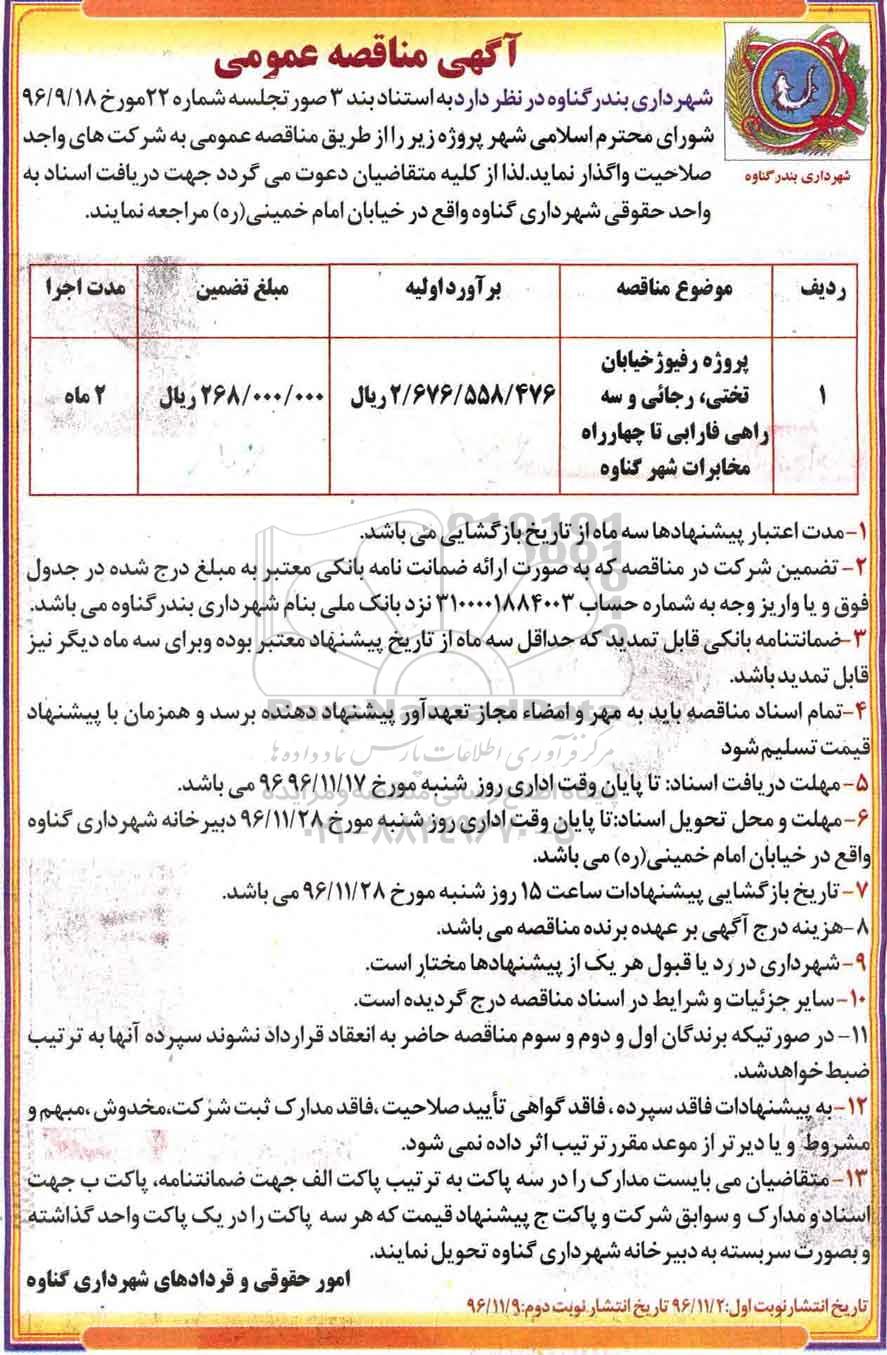 آگهی مناقصه عمومی
شهرداری بندر گناوه
شهرداری بندر گناوه در نظر دارد به استناد بند ۳ صور تجلسه شماره ۲۲ مورخ ۹۶/۹/۱۸
شورای محترم اسلامی شهر پروژه زیر را از طریق مناقصه عمومی به شرکت های واجد
صلاحیت واگذار نماید.لذا از کلیه متقاضیان دعوت می گردد جهت دریافت اسناد به
واحد حقوقی شهرداری گناوه واقع در خیابان امام خمینی(ره) مراجعه نمایند.
ردیف موضوع مناقصه برآورد اولیه مبلغ تضمین مدت اجرا
پروژه رفیوژ خیابان
۱ تختی، رجائی و سه ۲/۶۷۶/۵۵۸/۴۷۶ ریال ۲۶۸/۰۰۰/۰۰۰ ریال ۲ ماه
راهی فارابی تا چهارراه
مخابرات شهر گناوه
۱-مدت اعتبار پیشنهادها سه ماه از تاریخ بازگشایی می باشد.
۲- تضمین شرکت در مناقصه که به صورت ارائه ضمانت نامه بانکی معتبر به مبلغ درج شده در جدول
فوق و یا واریز وجه به شماره حساب ۳۱۰۰۰۰۱۸۸۴۰۰۳ نزد بانک ملی بنام شهرداری بندر گناوه می باشد.
۳-ضمانتنامه بانکی قابل تمدید که حداقل سه ماه از تاریخ پیشنهاد معتبر بوده وبرای سه ماه دیگر نیز
قابل تمدید باشد.
۴-تمام اسناد مناقصه باید به مهر و امضاء مجاز تعهدآور پیشنهاد دهنده برسد و همزمان با پیشنهاد
قیمت تسلیم شود
۵-مهلت دریافت اسناد: تا پایان وقت اداری روز شنبه مورخ ۹۶/۱۱/۱۷ ۹۶ می باشد.
۶-مهلت و محل تحویل اسناد:تا پایان وقت اداری روز شنبه مورخ ۹۶/۱۱/۲۸ دبیرخانه شهرداری گناوه
واقع در خیابان امام خمینی(ره) می باشد.
۷- تاریخ بازگشایی پیشنهادات ساعت ۱۵ روز شنبه مورخ ۹۶/۱۱/۲۸ می باشد.
۸-هزینه درج آگهی بر عهده برنده مناقصه می باشد.
۹-شهرداری در رد یا قبول هر یک از پیشنهادها مختار است.
۱۰-سایر جزئیات و شرایط در اسناد مناقصه درج گردیده است.
۱۱- در صورتیکه برندگان اول و دوم و سوم مناقصه حاضر به انعقاد قرارداد نشوند سپرده آنها به ترتیب
ضبط خواهدشد.
۱۲-به پیشنهادات فاقد سپرده ، فاقد گواهی تأیید صلاحیت ،فاقد مدارک ثبت شرکت،مخدوش ،مبهم و
مشروط و یا دیرتر از موعد مقرر ترتیب اثر داده نمی شود.
۱۳- متقاضیان می بایست مدارک را در سه پاکت به ترتیب پاکت الف جهت ضمانتنامه، پاکت ب جهت
اسناد و مدارک و سوابق شرکت و پاکت ج پیشنهاد قیمت که هر سه پاکت را در یک پاکت واحد گذاشته
و بصورت سربسته به دبیرخانه شهرداری گناوه تحویل نمایند.
امور حقوقی و قردادهای شهرداری گناوه
تاریخ انتشار نوبت اول: ۹۶/۱۱/۲ تاریخ انتشار نوبت دوم: ۹۶/۱۱/۹
ParsNamadData
مرکز فرآوری اطلاعات پارس نماد داده ها
پایگاه اطلاع رسانی مناقصه و مزایده
۰۲۱-۸۸۳۴۹۶۷۰-۵